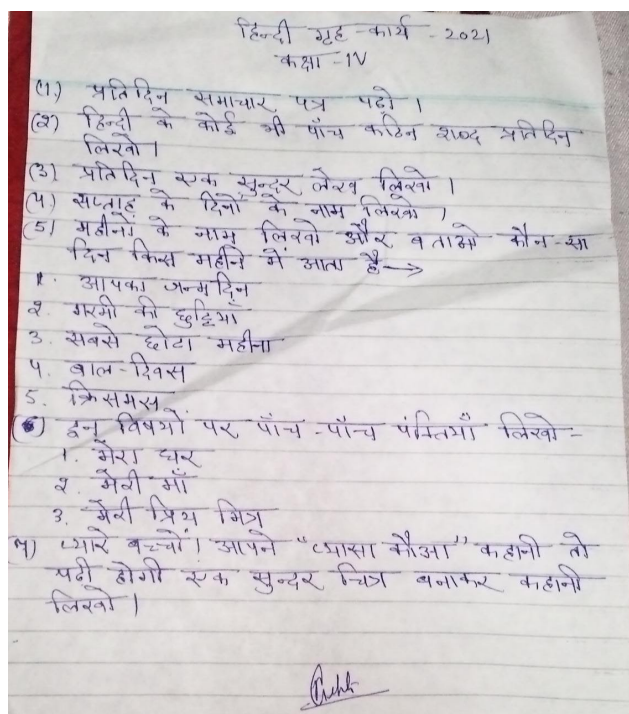 हिन्दी गृह-कार्य - 2021
कक्षा -IV
(1.) प्रतिदिन समाचार पत्र पढ़ो ।
(2) हिन्दी के कोई भी पाँच कठिन शब्द प्रतिदिन
लिखो ।
(3) प्रतिदिन एक सुन्दर लेख लिखो ।
(4) सप्ताह के दिनों के नाम लिखो ।
(5) महीनों के नाम लिखो और बताओ कौन-सा
दिन किस महीने में आता है →
1. आपका जन्मदिन
2. गरमी की छुट्टियाँ
3. सबसे छोटा महीना
4. बाल-दिवस
5. क्रिसमस
(6) इन विषयों पर पाँच-पाँच पंक्तियाँ लिखो -
1. मेरा घर
2. मेरी माँ
3. मेरी प्रिय मित्र
7) प्यारे बच्चों। आपने "प्यासा कौआ" कहानी तो
पढ़ी होगी एक सुन्दर चित्र बनाकर कहानी
लिखो ।